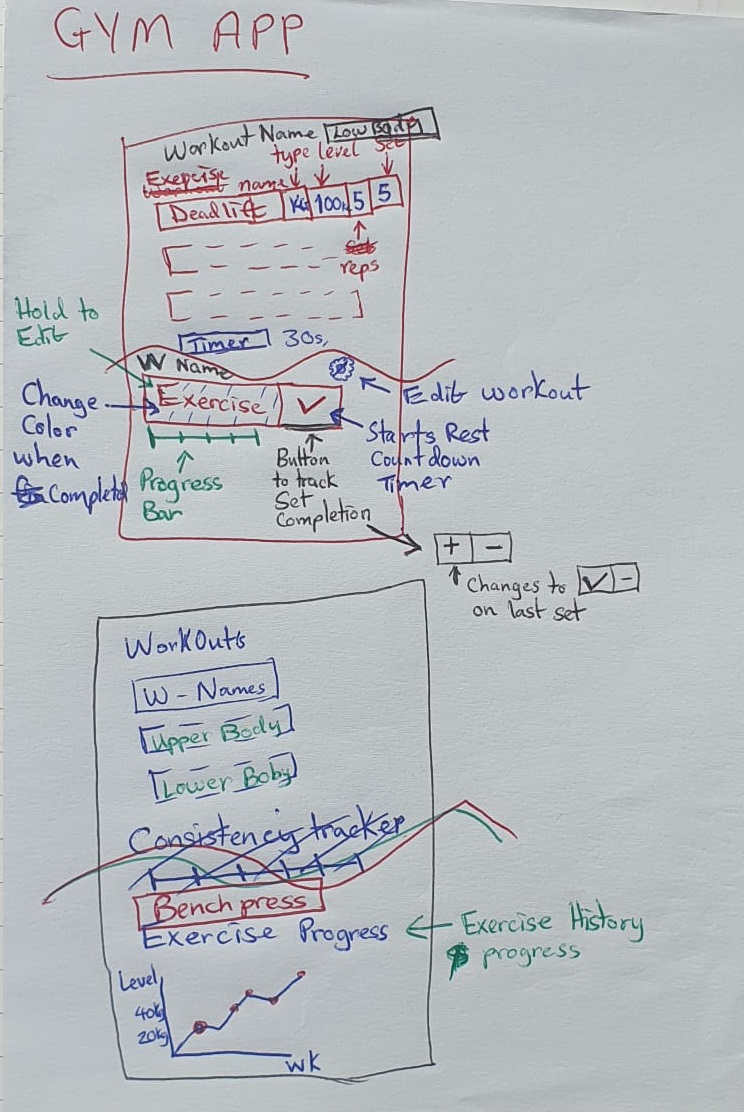 GYM APP
Workout Name Low Body
type level Set
Exercise name
Deadlift Kg 100 5 5
reps
Hold to
Edit
Timer 30s,
W Name
Edit workout
Change
Color
when
Completed
Exercise ✓
Starts Rest
Countdown
Timer
Progress
Bar
Button
to track
Set
Completion
+ −
Changes to ✓ −
on last set
WorkOuts
W - Names
Upper Body
Lower Boby
Consistency tracker
Bench press
Exercise Progress
Exercise History
progress
Level
40kg
20kg
WK